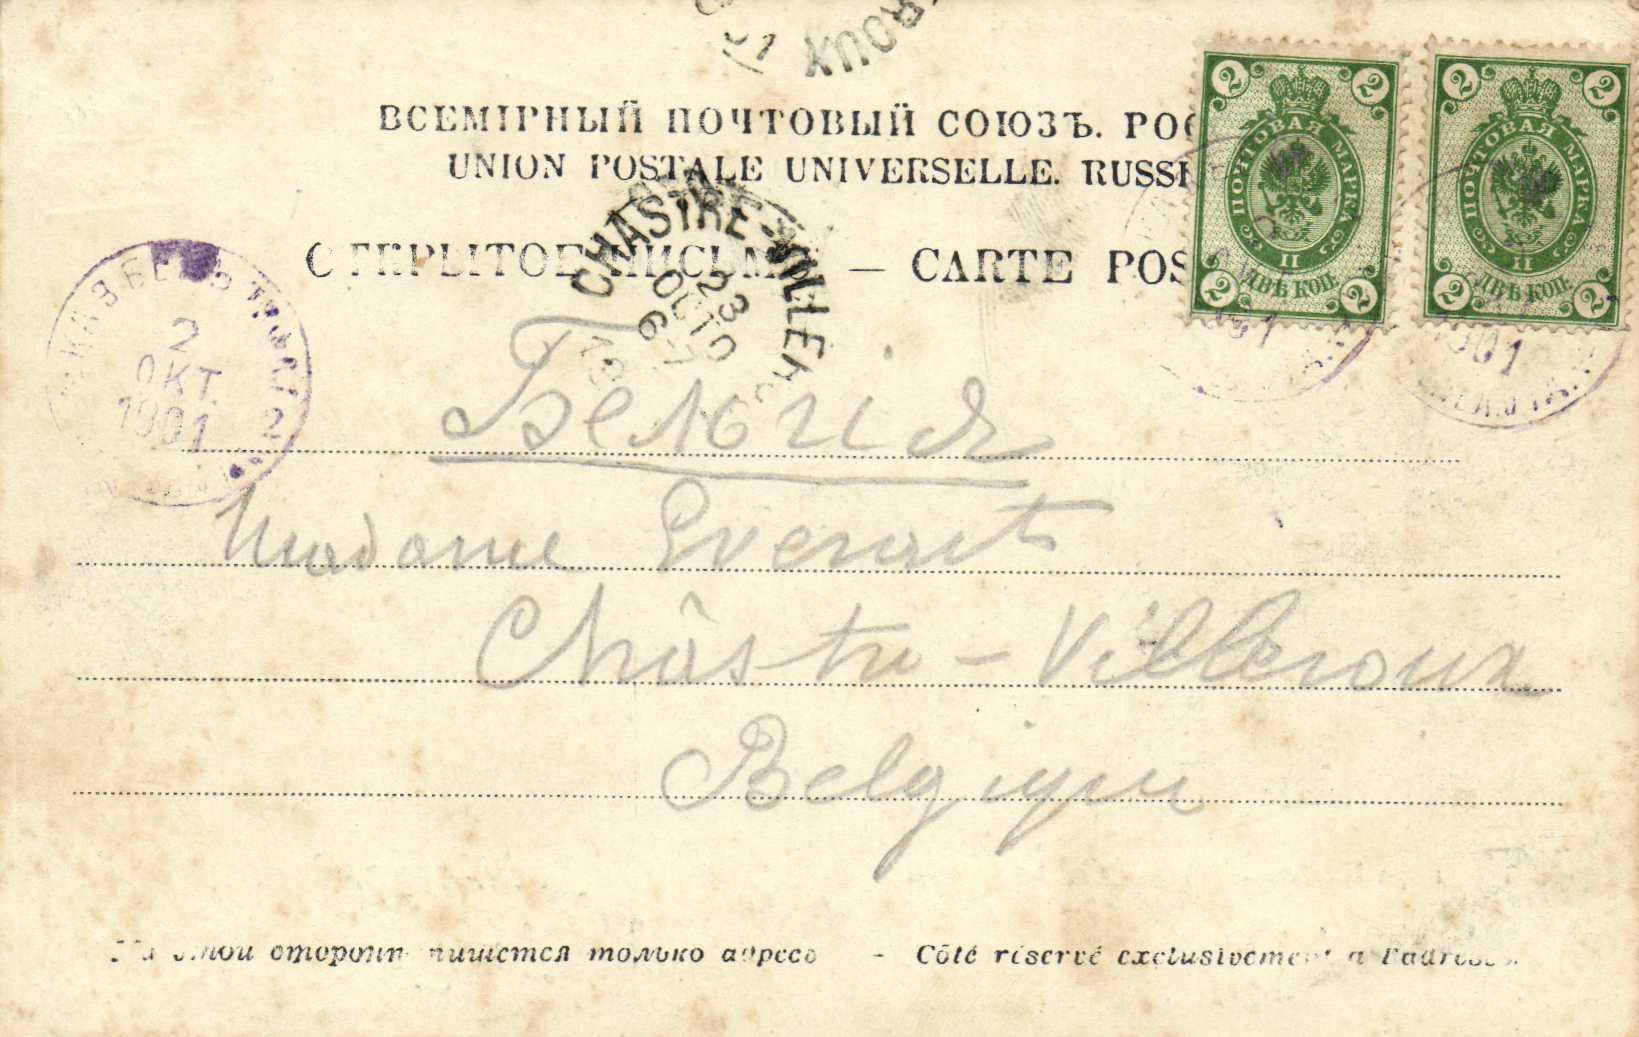 ВСЕМІРНЫЙ ПОЧТОВЫЙ СОЮЗЪ. РОС
UNION POSTALE UNIVERSELLE. RUSSI
ОТКРЫТОЕ ПИСЬМО — CARTE POS
2 2
ПОЧТОВАЯ МАРКА
II
ДВѢ КОП.
2 2
2 2
ПОЧТОВАЯ МАРКА
II
ДВѢ КОП.
2 2
CHASTRE-VILLER
23
OCTO
6-7
2
ОКТ.
1901
1901
Бельгия
Madame Everaerts
Châstre-Villeroux
Belgique
На этой сторонѣ пишется только адресъ - Côté réservé exclusivement a l'adresse.